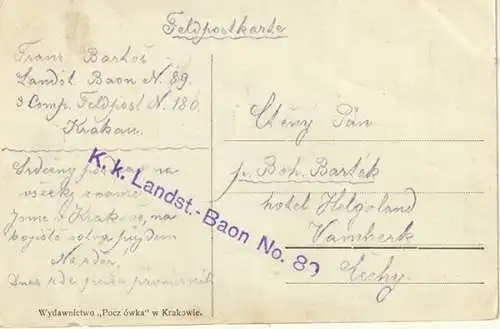 Feldpostkarte
Franz Bartoš
Landst. Baon N. 89
3 Comp. Feldpost N. 186
Krakau.
Srdečný pozdrav na
všecky známé
Jsme v Krakově, na
bojiště solva pujdem
Na zdar,
Dnes zde
K. k. Landst.-Baon No. 89
Ctěný Pán
p. Boh. Barták
hotel Helgoland
Vamberk
Čechy.
Wydawnictwo „Pocztówka" w Krakowie.